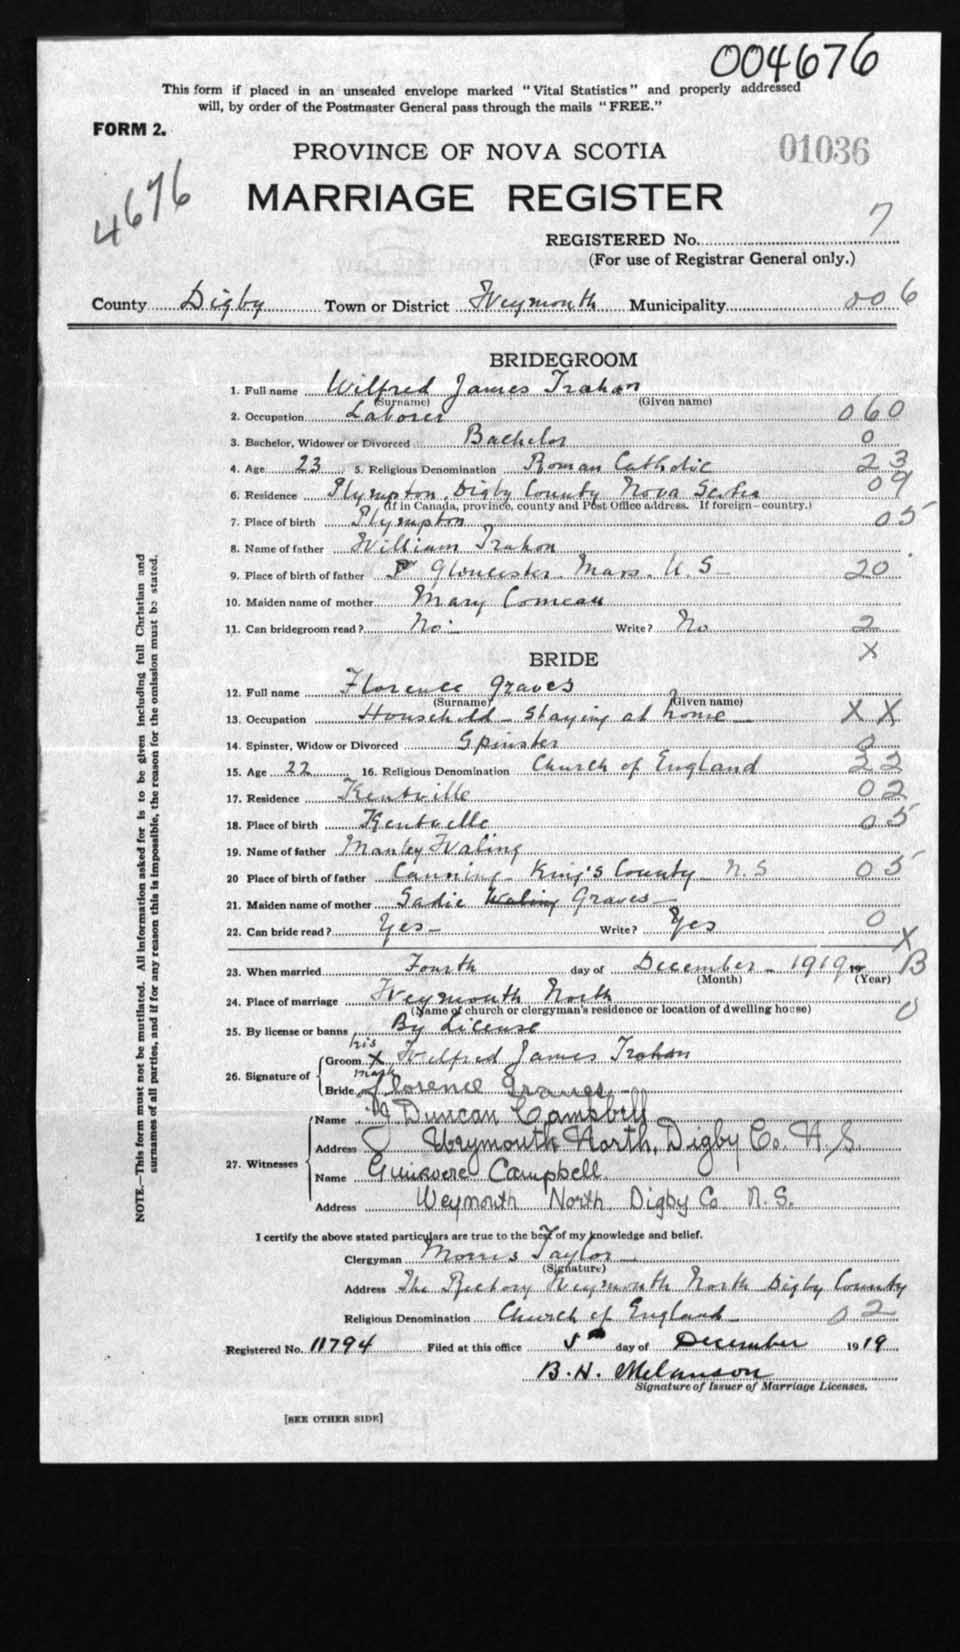 004676
This form if placed in an unsealed envelope marked "Vital Statistics" and properly addressed
will, by order of the Postmaster General pass through the mails "FREE."
FORM 2.
PROVINCE OF NOVA SCOTIA
01036
4676
MARRIAGE REGISTER
REGISTERED No. 7
(For use of Registrar General only.)
County Digby Town or District Weymouth Municipality 006
BRIDEGROOM
1. Full name Wilfred James Trahan
(Surname) (Given name)
2. Occupation Laborer 060
3. Bachelor, Widower or Divorced Bachelor 0
4. Age 23 5. Religious Denomination Roman Catholic 23
6. Residence Plympton, Digby County Nova Scotia 09
(If in Canada, province, county and Post Office address. If foreign—country.)
7. Place of birth Plympton 05
8. Name of father William Trahan
9. Place of birth of father Gloucester. Mass. U.S— 20
10. Maiden name of mother Mary Comeau
11. Can bridegroom read? No— Write? No 2
X
BRIDE
12. Full name Florence Graves
(Surname) (Given name)
13. Occupation Household — Staying at home — X X
14. Spinster, Widow or Divorced Spinster 0
15. Age 22 16. Religious Denomination Church of England 22
17. Residence Kentville 02
18. Place of birth Kentville 05
19. Name of father Manley Waling
20 Place of birth of father Canning— King's County— N.S 05
21. Maiden name of mother Sadie Waling Graves—
22. Can bride read? Yes— Write? Yes 0
X
23. When married Fourth day of December— 1919 B
(Month) (Year)
24. Place of marriage Weymouth North
(Name of church or clergyman's residence or location of dwelling house) 0
25. By license or banns By License
his
26. Signature of Groom X Wilfred James Trahan
mark
Bride Florence Graves
27. Witnesses Name Duncan Campbell
Address Weymouth North, Digby Co. N.S.
Name Guinivere Campbell
Address Weymouth North Digby Co. N.S.
I certify the above stated particulars are true to the best of my knowledge and belief.
Clergyman Morris Taylor —
(Signature)
Address The Rectory Weymouth North Digby County
Religious Denomination Church of England— 02
Registered No. 11794 Filed at this office 5th day of December 1919
B. H. Melanson
Signature of Issuer of Marriage Licenses.
[SEE OTHER SIDE]
NOTE.—This form must not be mutilated. All information asked for is to be given including full Christian and
surnames of all parties, and if for any reason this is impossible, the reason for the omission must be stated.